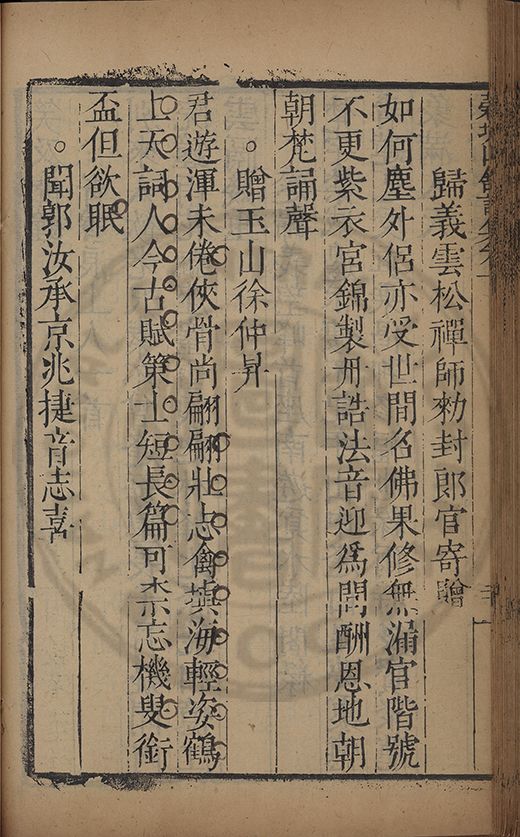 歸義雲松禪師勑封郎官寄贈
如何塵外侶亦受世間名佛果修無漏官階號
不更紫衣宮錦製冊誥法音迎爲問酬恩地朝
朝梵誦聲
贈玉山徐仲昇
君遊渾未倦俠骨尚翩翩壯志禽塡海輕姿鶴
上天詞人今古賦策士短長篇可柰忘機叟銜
盃但欲眠
聞郭汝承京兆捷音志喜